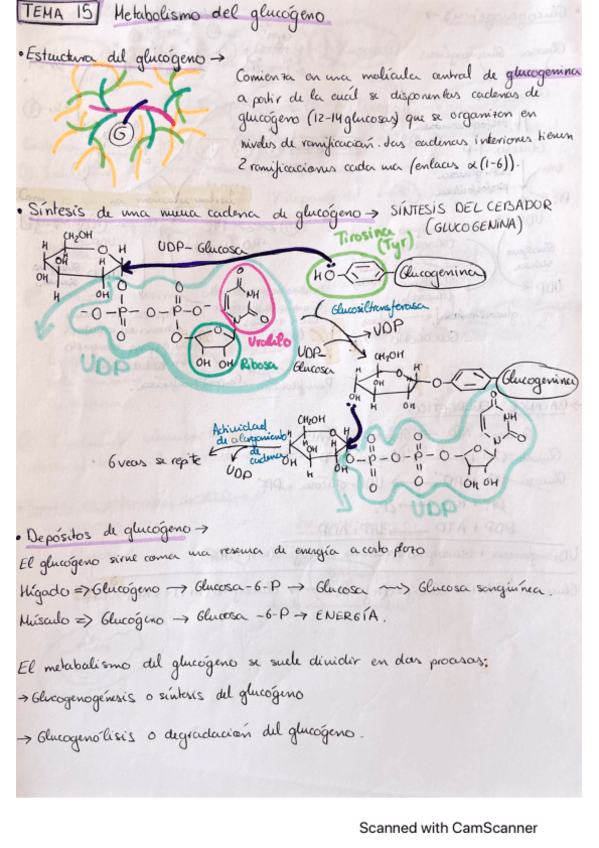 TEMA 15 Metabolismo del glucógeno
• Estructura del glucógeno →
Comienza en una molécula central de glucogenina
a partir de la cuál se disponen las cadenas de
glucógeno (12-14 glucosas) que se organizan en
niveles de ramificación. Las cadenas interiores tienen
2 ramificaciones cada una (enlaces α(1-6)).
G
• Síntesis de una nueva cadena de glucógeno → SÍNTESIS DEL CEBADOR
(GLUCOGENINA)
CH₂OH
O
H
H
H
OH
OH
H
OH
UDP-Glucosa
Tirosina
(Tyr)
HO
Glucogenina
O
O
⁻O-P-O-P-O⁻
O
O
O
NH
N
O
Uracilo
O
OH OH
Ribosa
UDP
Glucosiltransferasa
UDP
UDP-
Glucosa
CH₂OH
O
H
H
OH
H
O
Glucogenina
Actividad
de alargamiento
de
cadena
UDP
6 veces se repite
CH₂OH
O
H
OH
H
OH
H
OH
O-P-O-P-O
O
O
O
O
O
NH
N
O
O
OH OH
UDP
• Depósitos de glucógeno →
El glucógeno sirve como una reserva de energía a corto plazo
Hígado => Glucógeno → Glucosa-6-P → Glucosa ⟿ Glucosa sanguínea.
Músculo => Glucógeno → Glucosa-6-P → ENERGÍA.
El metabolismo del glucógeno se suele dividir en dos procesos:
→ Glucogenogénesis o síntesis del glucógeno
→ Glucogenólisis o degradación del glucógeno.
Scanned with CamScanner